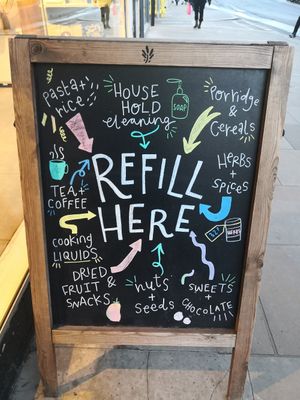 Pasta +
rice
HOUSE
HOLD
cleaning
SOAP
Porridge
&
Cereals
TEA +
COFFEE
REFILL
HERE
HERBS
+
SPICES
Cooking
LIQUIDS
DRIED
FRUIT &
SNACKS
nuts
+
Seeds
SWEETS
+
CHOCOLATE